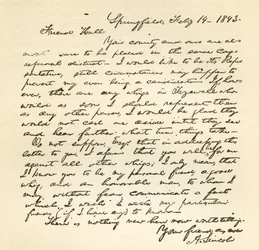 Springfield, Feby 14 - 1843.
Friend Hull
Your county and ours are al-
most sure to be placed in the same Cong-
ressional district - I would like to be its Repre
sentative, still circumstances may happen to
prevent my even being a candidate - If, how-
ever, there are any whigs in Tazewell who
would as soon I should represent them
as any other person, I would be glad they
would not cast me aside until they see
and hear farther what turn things take.
Do not suppose, Esqr. that in addressing this
letter to you, I assume that you will be for me
against all other whigs; I only mean, that
I know you to be my personal friend, a good
whig, and an honorable man, to whom I
may, without fear, communicate a fact
which I wish my particular
friends (if I have any) to know.
There is nothing new here now worth telling.
Your friend, as ever
A. Lincoln